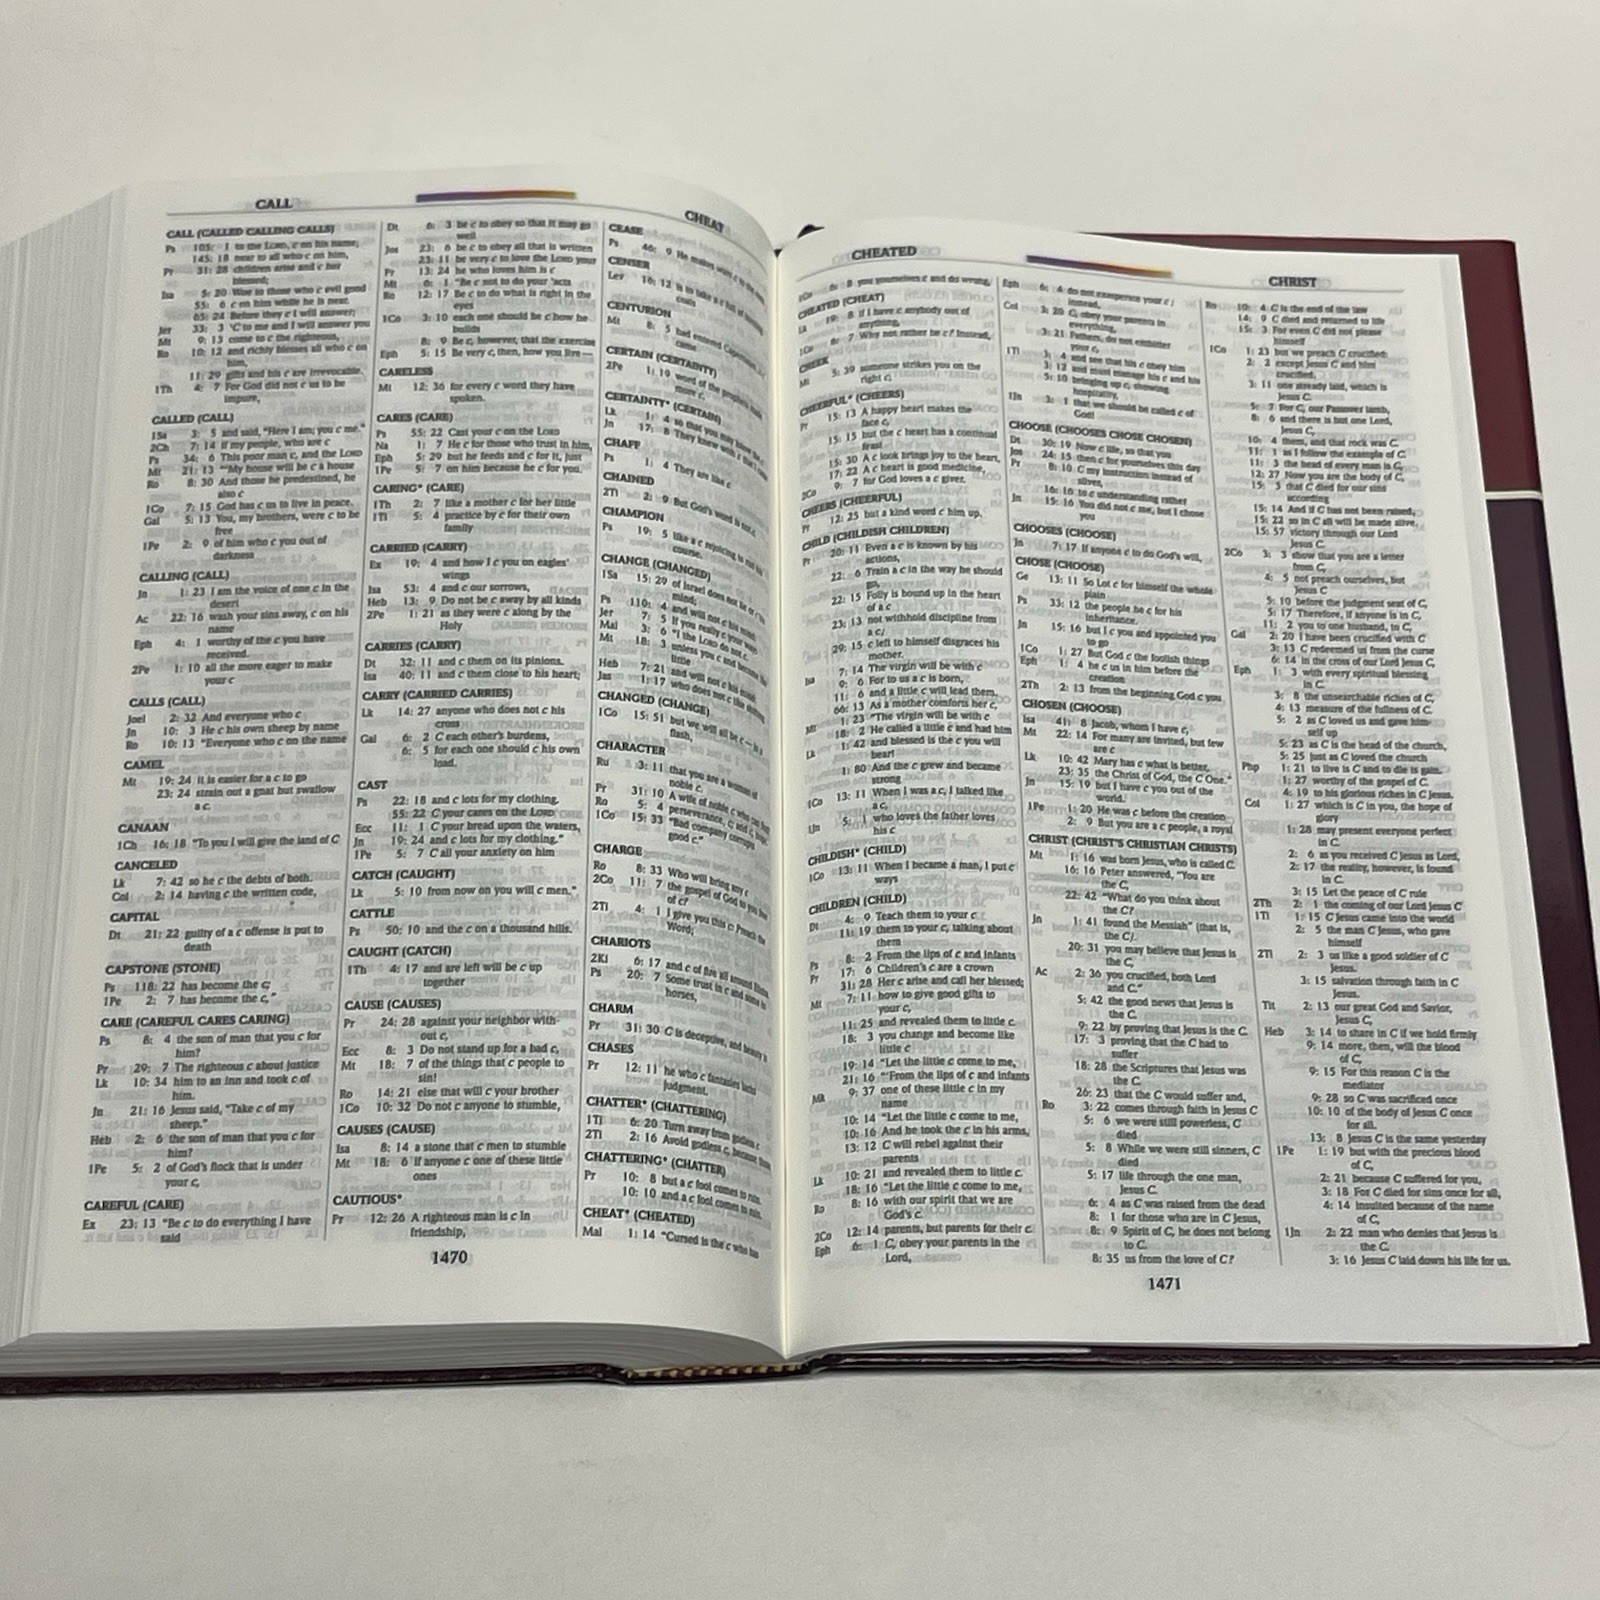 CALL
CALL (CALLED CALLING CALLS)
Ps 105: 1 to the LORD, c on his name;
145: 18 near to all who c on him,
Pr 31: 28 children arise and c her
blessed;
Isa 5: 20 Woe to those who c evil good
55: 6 c on him while he is near.
65: 24 Before they c I will answer;
Jer 33: 3 'C to me and I will answer you
Mt 9: 13 come to c the righteous,
Ro 10: 12 and richly blesses all who c on
him,
11: 29 gifts and his c are irrevocable.
1Th 4: 7 For God did not c us to be
impure,
CALLED (CALL)
1Sa 3: 5 and said, "Here I am; you c me."
2Ch 7: 14 if my people, who are c
Ps 34: 6 This poor man c, and the LORD
Mt 21: 13 "'My house will be c a house
Ro 8: 30 And those he predestined, he
also c
1Co 7: 15 God has c us to live in peace.
Gal 5: 13 You, my brothers, were c to be
free
1Pe 2: 9 of him who c you out of
darkness
CALLING (CALL)
Jn 1: 23 I am the voice of one c in the
desert
Ac 22: 16 wash your sins away, c on his
name
Eph 4: 1 worthy of the c you have
received.
2Pe 1: 10 all the more eager to make
your c
CALLS (CALL)
Joel 2: 32 And everyone who c
Jn 10: 3 He c his own sheep by name
Ro 10: 13 "Everyone who c on the name
CAMEL
Mt 19: 24 it is easier for a c to go
23: 24 strain out a gnat but swallow
a c.
CANAAN
1Ch 16: 18 "To you I will give the land of C
CANCELED
Lk 7: 42 so he c the debts of both.
Col 2: 14 having c the written code,
CAPITAL
Dt 21: 22 guilty of a c offense is put to
death
CAPSTONE (STONE)
Ps 118: 22 has become the c;
1Pe 2: 7 has become the c,"
CARE (CAREFUL CARES CARING)
Ps 8: 4 the son of man that you c for
him?
Pr 29: 7 The righteous c about justice
Lk 10: 34 him to an inn and took c of
him.
Jn 21: 16 Jesus said, "Take c of my
sheep."
Heb 2: 6 the son of man that you c for
him?
1Pe 5: 2 of God's flock that is under
your c,
CAREFUL (CARE)
Ex 23: 13 "Be c to do everything I have
said
Dt 6: 3 be c to obey so that it may go
well
Jos 23: 6 be c to obey all that is written
23: 11 be very c to love the LORD your
Pr 13: 24 he who loves him is c
Mt 6: 1 "Be c not to do your 'acts
Ro 12: 17 Be c to do what is right in the
eyes
1Co 3: 10 each one should be c how he
builds
8: 9 Be c, however, that the exercise
Eph 5: 15 Be very c, then, how you live—
CARELESS
Mt 12: 36 for every c word they have
spoken.
CARES (CARE)
Ps 55: 22 Cast your c on the LORD
Na 1: 7 He c for those who trust in him,
Eph 5: 29 but he feeds and c for it, just
1Pe 5: 7 on him because he c for you.
CARING* (CARE)
1Th 2: 7 like a mother c for her little
1Ti 5: 4 practice by c for their own
family
CARRIED (CARRY)
Ex 19: 4 and how I c you on eagles'
wings
Isa 53: 4 and c our sorrows,
Heb 13: 9 Do not be c away by all kinds
2Pe 1: 21 as they were c along by the
Holy
CARRIES (CARRY)
Dt 32: 11 and c them on its pinions.
Isa 40: 11 and c them close to his heart;
CARRY (CARRIED CARRIES)
Lk 14: 27 anyone who does not c his
cross
Gal 6: 2 C each other's burdens,
6: 5 for each one should c his own
load.
CAST
Ps 22: 18 and c lots for my clothing.
55: 22 C your cares on the LORD
Ecc 11: 1 C your bread upon the waters,
Jn 19: 24 and c lots for my clothing."
1Pe 5: 7 C all your anxiety on him
CATCH (CAUGHT)
Lk 5: 10 from now on you will c men."
CATTLE
Ps 50: 10 and the c on a thousand hills.
CAUGHT (CATCH)
1Th 4: 17 and are left will be c up
together
CAUSE (CAUSES)
Pr 24: 28 against your neighbor with-
out c,
Ecc 8: 3 Do not stand up for a bad c,
Mt 18: 7 of the things that c people to
sin!
Ro 14: 21 else that will c your brother
1Co 10: 32 Do not c anyone to stumble,
CAUSES (CAUSE)
Isa 8: 14 a stone that c men to stumble
Mt 18: 6 if anyone c one of these little
ones
CAUTIOUS*
Pr 12: 26 A righteous man is c in
friendship,
1470
CHEAT
CEASE
Ps 46: 9 He makes wars c to the
CENSER
Lev 16: 12 is to take a c full of burning
coals
CENTURION
Mt 8: 5 had entered Capernaum, a c
came
CERTAIN (CERTAINTY)
2Pe 1: 19 word of the prophets made
more c,
CERTAINTY* (CERTAIN)
Lk 1: 4 so that you may know the c
Jn 17: 8 They knew with c that I
CHAFF
Ps 1: 4 They are like c
CHAINED
2Ti 2: 9 But God's word is not c.
CHAMPION
Ps 19: 5 like a c rejoicing to run his
course.
CHANGE (CHANGED)
1Sa 15: 29 of Israel does not lie or c his
mind;
Ps 110: 4 and will not c his mind
Jer 7: 5 If you really c your ways
Mal 3: 6 "I the LORD do not c.
Mt 18: 3 unless you c and become like
little
Heb 7: 21 and will not c his mind
Jas 1: 17 who does not c like shifting
CHANGED (CHANGE)
1Co 15: 51 but we will all be c— in a
flash,
CHARACTER
Ru 3: 11 that you are a woman of
noble c.
Pr 31: 10 A wife of noble c who can find
Ro 5: 4 perseverance, c; and c, hope
1Co 15: 33 "Bad company corrupts
good c."
CHARGE
Ro 8: 33 Who will bring any c
2Co 11: 7 the gospel of God to you free
of c?
2Ti 4: 1 I give you this c: Preach the
Word;
CHARIOTS
2Ki 6: 17 and c of fire all around Elisha
Ps 20: 7 Some trust in c and some in
horses,
CHARM
Pr 31: 30 C is deceptive, and beauty is
CHASES
Pr 12: 11 he who c fantasies lacks
judgment.
CHATTER* (CHATTERING)
1Ti 6: 20 Turn away from godless c
2Ti 2: 16 Avoid godless c, because those
CHATTERING* (CHATTER)
Pr 10: 8 but a c fool comes to ruin.
10: 10 and a c fool comes to ruin.
CHEAT* (CHEATED)
Mal 1: 14 "Cursed is the c who has
CHEATED
1Co 6: 8 you yourselves c and do wrong,
CHEATED (CHEAT)
Lk 19: 8 if I have c anybody out of
anything,
1Co 6: 7 Why not rather be c? Instead,
CHEEK
Mt 5: 39 someone strikes you on the
right c,
CHEERFUL* (CHEERS)
Pr 15: 13 A happy heart makes the
face c,
15: 15 but the c heart has a continual
feast
15: 30 A c look brings joy to the heart,
17: 22 A c heart is good medicine,
2Co 9: 7 for God loves a c giver.
CHEERS (CHEERFUL)
Pr 12: 25 but a kind word c him up.
CHILD (CHILDISH CHILDREN)
Pr 20: 11 Even a c is known by his
actions,
22: 6 Train a c in the way he should
go,
22: 15 Folly is bound up in the heart
of a c
23: 13 not withhold discipline from
a c;
29: 15 c left to himself disgraces his
mother.
Isa 7: 14 The virgin will be with c
9: 6 For to us a c is born,
11: 6 and a little c will lead them.
66: 13 As a mother comforts her c,
Mt 1: 23 "The virgin will be with c
18: 2 He called a little c and had him
Lk 1: 42 and blessed is the c you will
bear!
1: 80 And the c grew and became
strong
1Co 13: 11 When I was a c, I talked like
a c,
1Jn 5: 1 who loves the father loves
his c
CHILDISH* (CHILD)
1Co 13: 11 When I became a man, I put c
ways
CHILDREN (CHILD)
Dt 4: 9 Teach them to your c
11: 19 them to your c, talking about
them
Ps 8: 2 From the lips of c and infants
Pr 17: 6 Children's c are a crown
31: 28 Her c arise and call her blessed;
Mt 7: 11 how to give good gifts to
your c,
11: 25 and revealed them to little c.
18: 3 you change and become like
little c
19: 14 "Let the little c come to me,
21: 16 "'From the lips of c and infants
Mk 9: 37 one of these little c in my
name
10: 14 "Let the little c come to me,
10: 16 And he took the c in his arms,
13: 12 C will rebel against their
parents
Lk 10: 21 and revealed them to little c.
18: 16 "Let the little c come to me,
Ro 8: 16 with our spirit that we are
God's c.
2Co 12: 14 parents, but parents for their c.
Eph 6: 1 C, obey your parents in the
Lord,
Eph 6: 4 do not exasperate your c;
instead,
Col 3: 20 C, obey your parents in
everything,
3: 21 Fathers, do not embitter
your c,
1Ti 3: 4 and see that his c obey him
3: 12 and must manage his c and his
5: 10 bringing up c, showing
hospitality,
1Jn 3: 1 that we should be called c of
God!
CHOOSE (CHOOSES CHOSE CHOSEN)
Dt 30: 19 Now c life, so that you
Jos 24: 15 then c for yourselves this day
Pr 8: 10 C my instruction instead of
silver,
16: 16 to c understanding rather
Jn 15: 16 You did not c me, but I chose
you
CHOOSES (CHOOSE)
Jn 7: 17 If anyone c to do God's will,
CHOSE (CHOOSE)
Ge 13: 11 So Lot c for himself the whole
plain
Ps 33: 12 the people he c for his
inheritance.
Jn 15: 16 but I c you and appointed you
to go
1Co 1: 27 But God c the foolish things
Eph 1: 4 he c us in him before the
creation
2Th 2: 13 from the beginning God c you
CHOSEN (CHOOSE)
Isa 41: 8 Jacob, whom I have c,
Mt 22: 14 For many are invited, but few
are c
Lk 10: 42 Mary has c what is better,
23: 35 the Christ of God, the C One."
Jn 15: 19 but I have c you out of the
world.
1Pe 1: 20 He was c before the creation
2: 9 But you are a c people, a royal
CHRIST (CHRIST'S CHRISTIAN CHRISTS)
Mt 1: 16 was born Jesus, who is called C.
16: 16 Peter answered, "You are
the C,
22: 42 "What do you think about
the C?
Jn 1: 41 found the Messiah" (that is,
the C).
20: 31 you may believe that Jesus is
the C,
Ac 2: 36 you crucified, both Lord
and C."
5: 42 the good news that Jesus is
the C.
9: 22 by proving that Jesus is the C.
17: 3 proving that the C had to
suffer
18: 28 the Scriptures that Jesus was
the C.
26: 23 that the C would suffer and,
Ro 3: 22 comes through faith in Jesus C
5: 6 we were still powerless, C
died
5: 8 While we were still sinners, C
died
5: 17 life through the one man,
Jesus C.
6: 4 as C was raised from the dead
8: 1 for those who are in C Jesus,
8: 9 Spirit of C, he does not belong
to C.
8: 35 us from the love of C?
1471
CHRIST
Ro 10: 4 C is the end of the law
14: 9 C died and returned to life
15: 3 For even C did not please
himself
1Co 1: 23 but we preach C crucified:
2: 2 except Jesus C and him
crucified.
3: 11 one already laid, which is
Jesus C.
5: 7 For C, our Passover lamb,
8: 6 and there is but one Lord,
Jesus C,
10: 4 them, and that rock was C.
11: 1 as I follow the example of C.
11: 3 the head of every man is C,
12: 27 Now you are the body of C,
15: 3 that C died for our sins
according
15: 14 And if C has not been raised,
15: 22 so in C all will be made alive.
15: 57 victory through our Lord
Jesus C.
2Co 3: 3 show that you are a letter
from C,
4: 5 not preach ourselves, but
Jesus C
5: 10 before the judgment seat of C,
5: 17 Therefore, if anyone is in C,
11: 2 you to one husband, to C,
Gal 2: 20 I have been crucified with C
3: 13 C redeemed us from the curse
6: 14 in the cross of our Lord Jesus C,
Eph 1: 3 with every spiritual blessing
in C.
3: 8 the unsearchable riches of C,
4: 13 measure of the fullness of C.
5: 2 as C loved us and gave him-
self up
5: 23 as C is the head of the church,
5: 25 just as C loved the church
Php 1: 21 to live is C and to die is gain.
1: 27 worthy of the gospel of C.
4: 19 to his glorious riches in C Jesus.
Col 1: 27 which is C in you, the hope of
glory
1: 28 may present everyone perfect
in C.
2: 6 as you received C Jesus as Lord,
2: 17 the reality, however, is found
in C.
3: 15 Let the peace of C rule
2Th 2: 1 the coming of our Lord Jesus C
1Ti 1: 15 C Jesus came into the world
2: 5 the man C Jesus, who gave
himself
2Ti 2: 3 us like a good soldier of C
Jesus.
3: 15 salvation through faith in C
Jesus.
Tit 2: 13 our great God and Savior,
Jesus C,
Heb 3: 14 to share in C if we hold firmly
9: 14 more, then, will the blood
of C,
9: 15 For this reason C is the
mediator
9: 28 so C was sacrificed once
10: 10 of the body of Jesus C once
for all.
13: 8 Jesus C is the same yesterday
1Pe 1: 19 but with the precious blood
of C,
2: 21 because C suffered for you,
3: 18 For C died for sins once for all,
4: 14 insulted because of the name
of C,
1Jn 2: 22 man who denies that Jesus is
the C.
3: 16 Jesus C laid down his life for us.